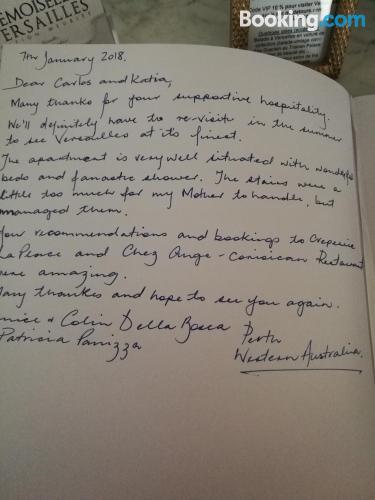 Booking.com
EMOISELLE
ERSAILLES
Code VIP 10 % pour visiter Ver
7TH January 2018.
Dear Carlos and Katia,
Many thanks for your supportive hospitality.
We'll definitely have to re-visit in the summer
to see Versailles at its finest.
The apartment is very well situated with wonderful
beds and fanastic shower. The stairs were a
little too much for my Mother to handle, but
managed them.
Your recommendations and bookings to Creperie
La Place and Chez Ange - Corsican Restaurant
were amazing.
Many thankes and hope to see you again.
& Colin Della Bosca Perth
Patricia Panizza Western Australia.